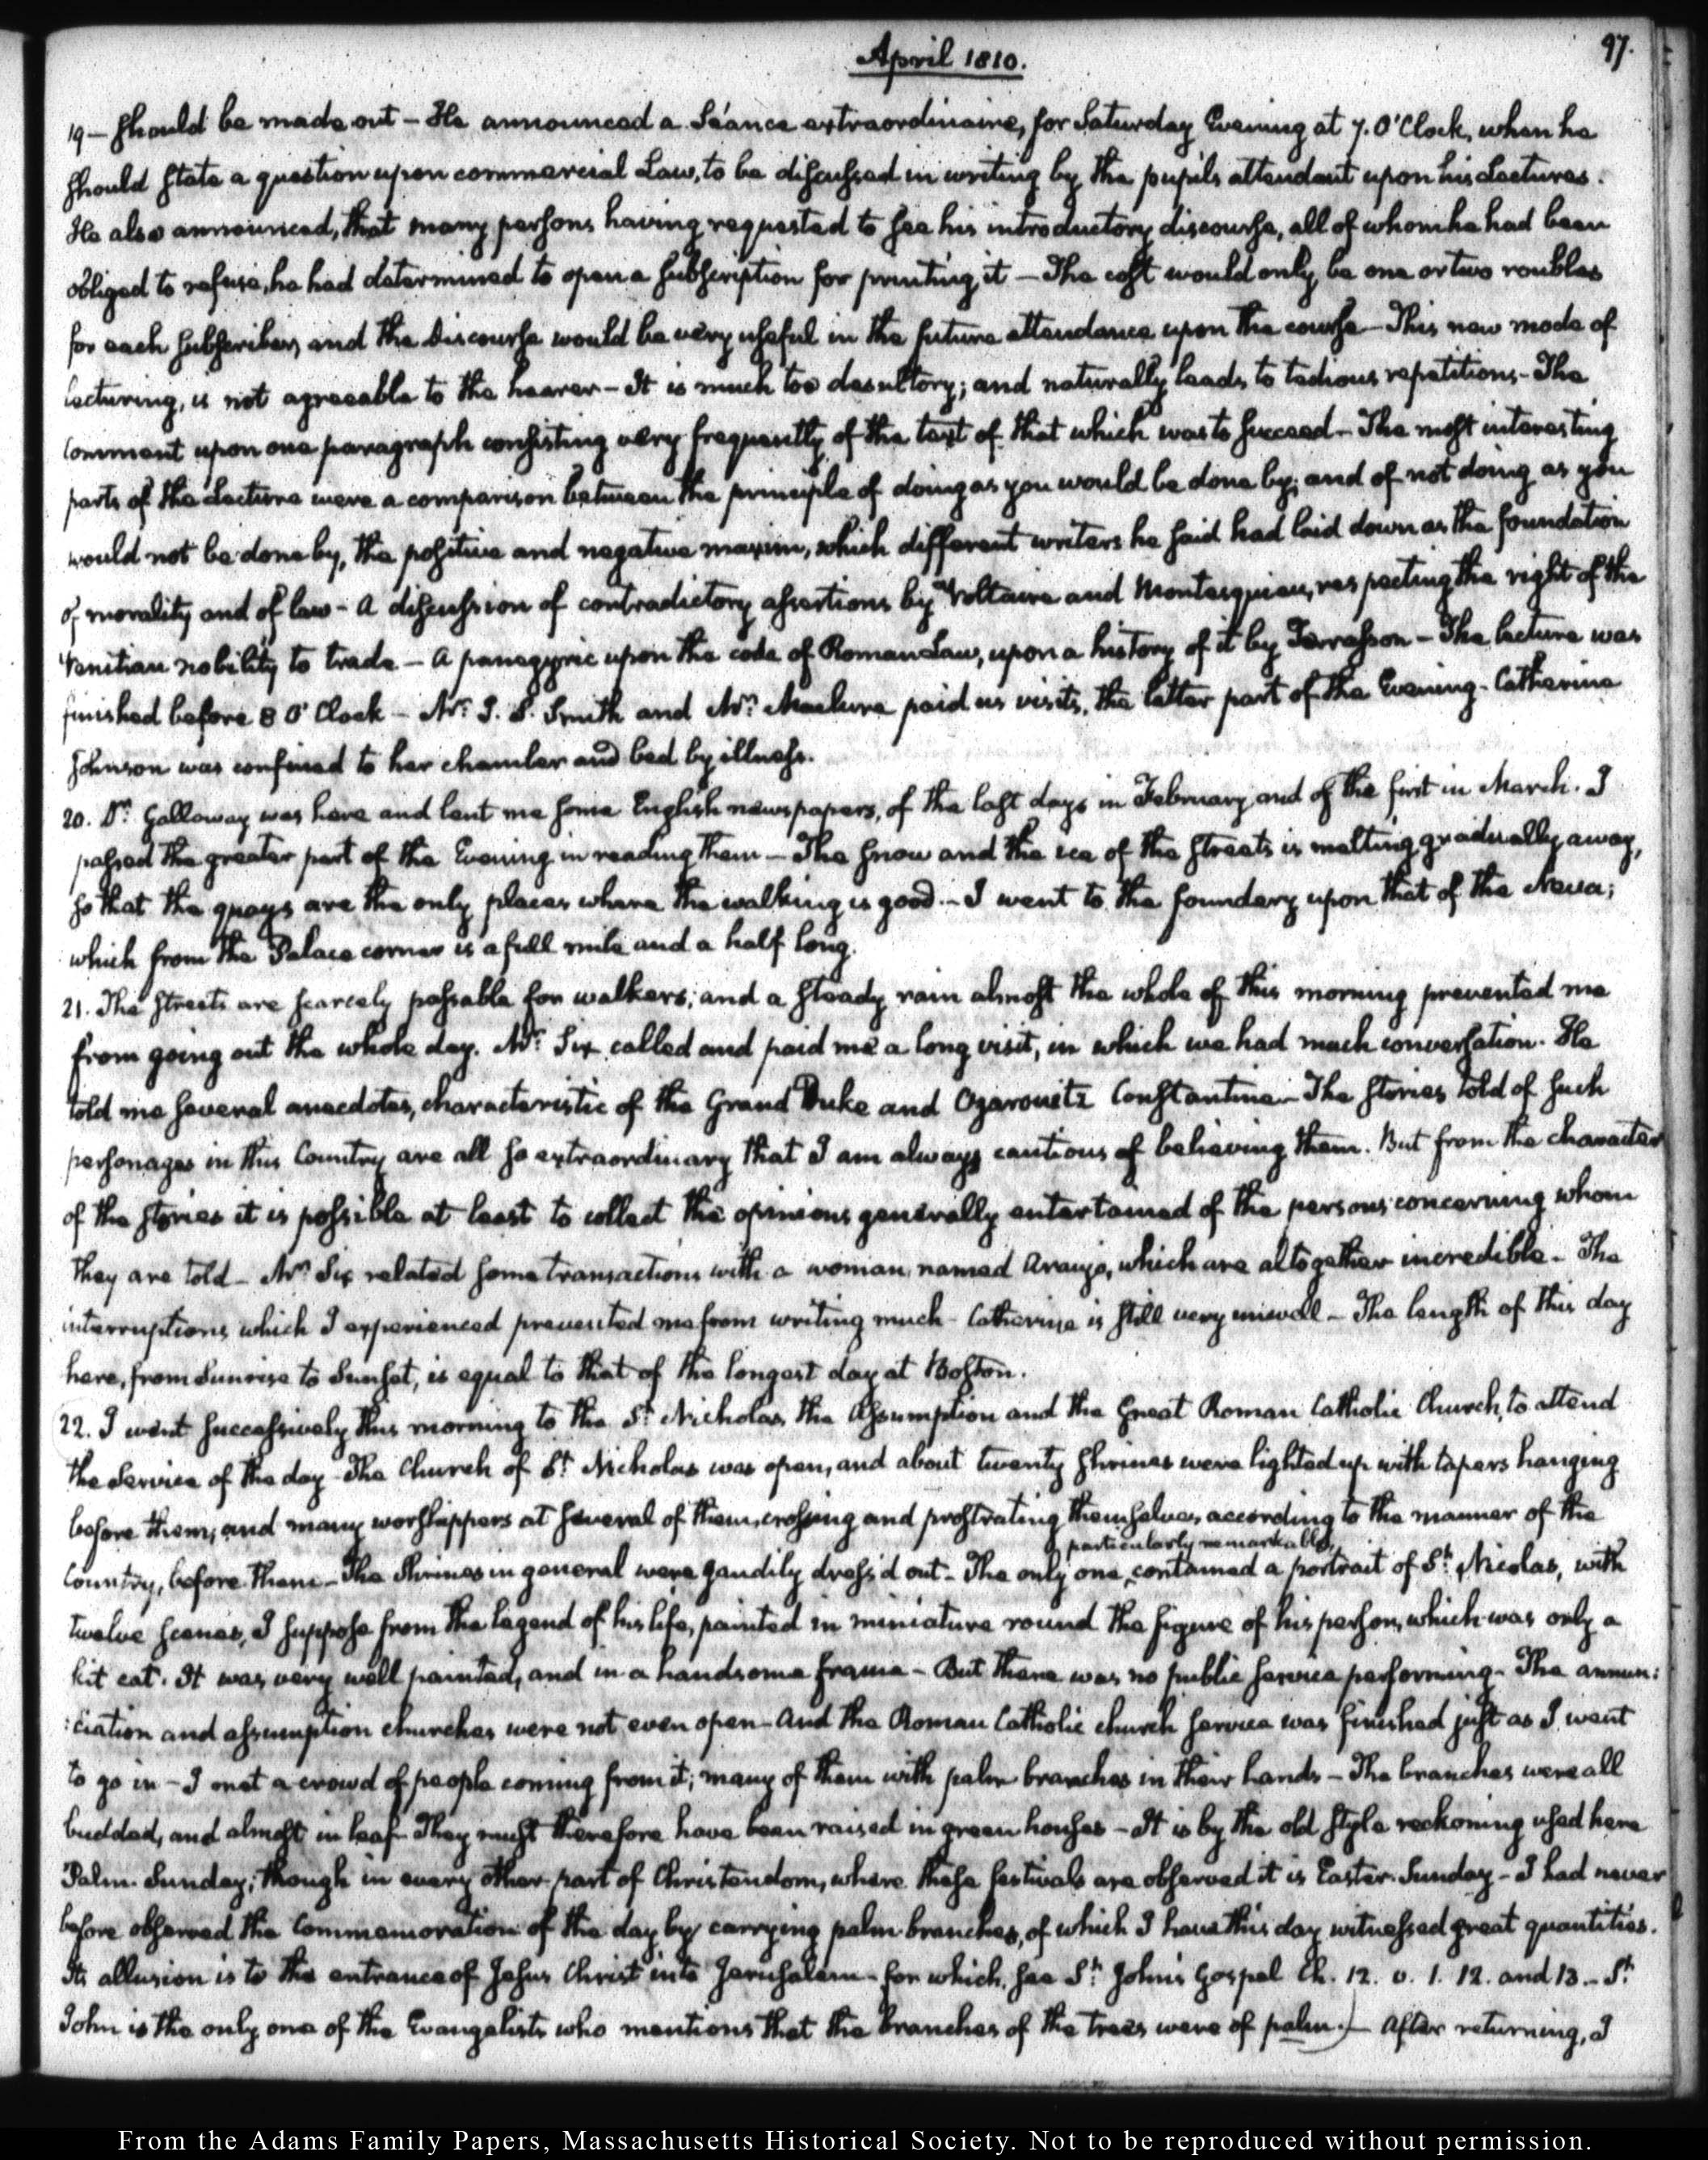 April 1810.
97.
19 — should be made out — He announced a Séance extraordinaire, for Saturday Evening at 7. O'Clock, when he
should state a question upon commercial Law, to be discussed in writing by the pupils attendant upon his Lectures.
He also announced, that many persons having requested to see his introductory discourse, all of whom he had been
obliged to refuse, he had determined to open a subscription for printing it — The cost would only be one or two roubles
for each subscriber, and the Discourse would be very useful in the future attendance upon the course — This new mode of
lecturing, is not agreeable to the hearer — It is much too desultory; and naturally leads to tedious repetitions — The
comment upon one paragraph consisting very frequently of the text of that which was to succeed — The most interesting
parts of the Lecture were a comparison between the principle of doing as you would be done by; and of not doing as you
would not be done by, the positive and negative maxim, which different writers he said had laid down as the foundation
of morality and of law — A discussion of contradictory assertions by Voltaire and Montesquieu, respecting the right of the
Venitian nobility to trade — A panegyric upon the code of Roman Law, upon a history of it by Terrasson — The lecture was
finished before 8 O'Clock — Mr. J. S. Smith and Mr. Maclure paid us visits, the latter part of the Evening — Catherine
Johnson was confined to her chamber and bed by illness.
20. Dr. Galloway was here and lent me some English newspapers, of the last days in February and of the first in March. I
passed the greater part of the Evening in reading them — The snow and the ice of the streets is melting gradually away,
so that the quays are the only places where the walking is good — I went to the foundery upon that of the Neva;
which from the Palace corner is a full mile and a half long.
21. The streets are scarcely passable for walkers; and a steady rain almost the whole of this morning prevented me
from going out the whole day. Mr. Six called and paid me a long visit, in which we had much conversation. He
told me several anecdotes, characteristic of the Grand Duke and Czarowitz Constantine — The stories told of such
personages in this Country are all so extraordinary that I am always cautious of believing them. But from the character
of the stories it is possible at least to collect the opinions generally entertained of the persons concerning whom
they are told — Mr. Six related some transactions with a woman named Araujo, which are altogether incredible — The
interruptions which I experienced prevented me from writing much — Catherine is still very unwell — The length of this day
here, from Sunrise to Sunset, is equal to that of the longest day at Boston.
22. I went successively this morning to the St. Nicholas, the Assumption and the Great Roman Catholic Church, to attend
the Service of the day — The Church of St. Nicholas was open, and about twenty shrines were lighted up with tapers hanging
before them; and many worshippers at several of them, crossing and prostrating themselves according to the manner of the
particularly remarkable,
Country, before them — The Shrines in general were gaudily dress'd out — The only one contained a portrait of St. Nicolas, with
twelve scenes, I suppose from the legend of his life, painted in miniature round the figure of his person, which was only a
kit cat. It was very well painted, and in a handsome frame — But there was no public service performing — The annun:
:ciation and assumption churches were not even open — And the Roman Catholic church service was finished just as I went
to go in — I met a crowd of people coming from it; many of them with palm branches in their hands — The branches were all
budded, and almost in leaf — They must therefore have been raised in green houses — It is by the old style reckoning used here
Palm Sunday; though in every other part of Christendom, where these festivals are observed it is Easter Sunday — I had never
before observed the Commemoration of the day by carrying palm branches, of which I have this day witnessed great quantities.
Its allusion is to the entrance of Jesus Christ into Jerusalem — for which, see St. John's Gospel Ch. 12. v. 1. 12. and 13. — St.
John is the only one of the Evangelists who mentions that the branches of the trees were of palm.) — After returning, I
From the Adams Family Papers, Massachusetts Historical Society. Not to be reproduced without permission.